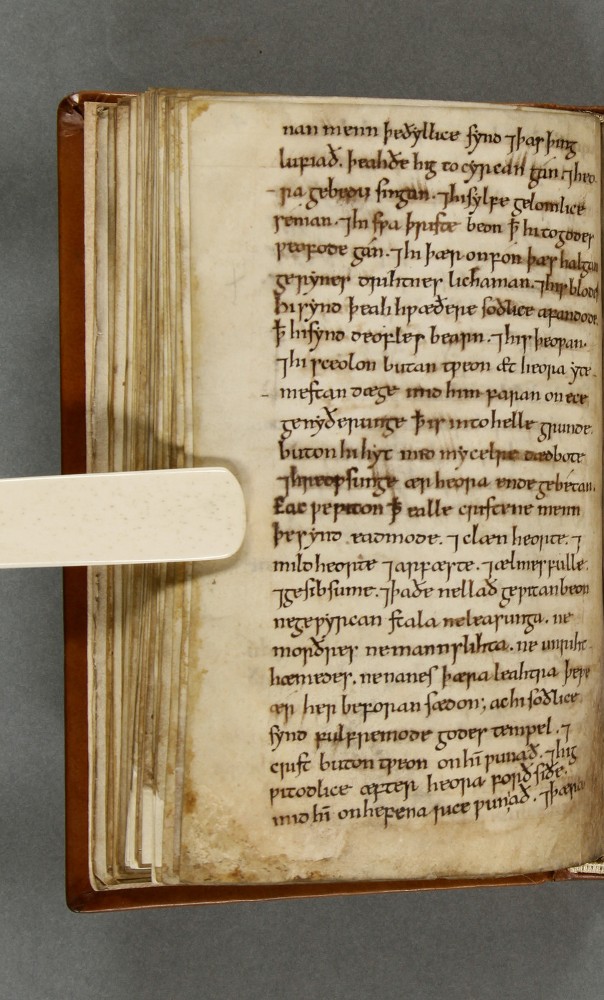 nan menn þe ðyllice synd ⁊ þas þing
lufiað. þeah ðe hig to cyrican gán. ⁊ heo
ra gebedu singan. ⁊ hi sylfe gelomlice
senian. ⁊ hi swa þriste beon þ̄ hi to godes
weofode gán. ⁊ hi þær onfon þas halgan
gerynes drihtnes lichaman. ⁊ his blodes
hi synd þeah hwæðere soðlice afandode.
þ̄ hi synd deofles bearn. ⁊ his þeowan.
⁊ hi sceolon butan tweon æt heora yte
mestan dæge mid him faran on ece
genyðerunge þ̄ is into helle grunde.
buton hi hyt mid mycelre dædbote
⁊ hreowsunge ær heora ende gebétan.
Eac we witon þ̄ ealle cristene menn
þe synd eadmode. ⁊ clæn heorte. ⁊
mild heorte ⁊ arfæste. ⁊ ælmesfulle.
⁊ gesibsume. ⁊ þa ðe nellað gewitan beon
ne gewyrican stala ne leasunga. ne
morðres ne mannslihta. ne unriht
hæmedes. ne nanes þæra leahtra þe we
ær her beforan sædon; ac hi soðlice
synd fulfremode godes tempel. ⁊
crist buton tweon on hī wunað. ⁊ hig
witodlice æfter heora forðsiðe.
mid hī on heofena rice wuniað. ⁊ þæra